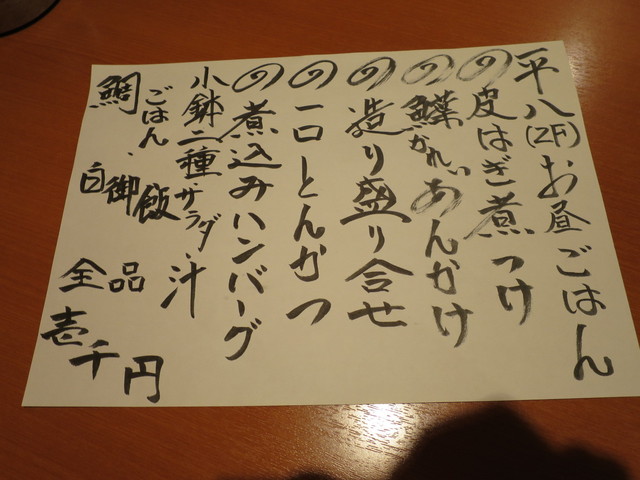 平八(2F)お昼ごはん
の皮はぎ煮つけ
の鰈がれいあんかけ
の造り盛り合せ
の一口とんかつ
の煮込みハンバーグ
小鉢二種サラダ・汁
鯛ごはん・白御飯
全品壱千円